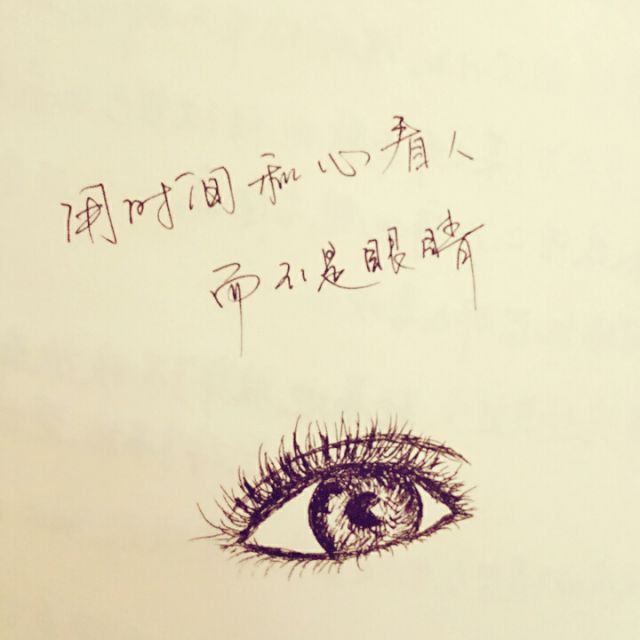 用时间和心看人
而不是眼睛